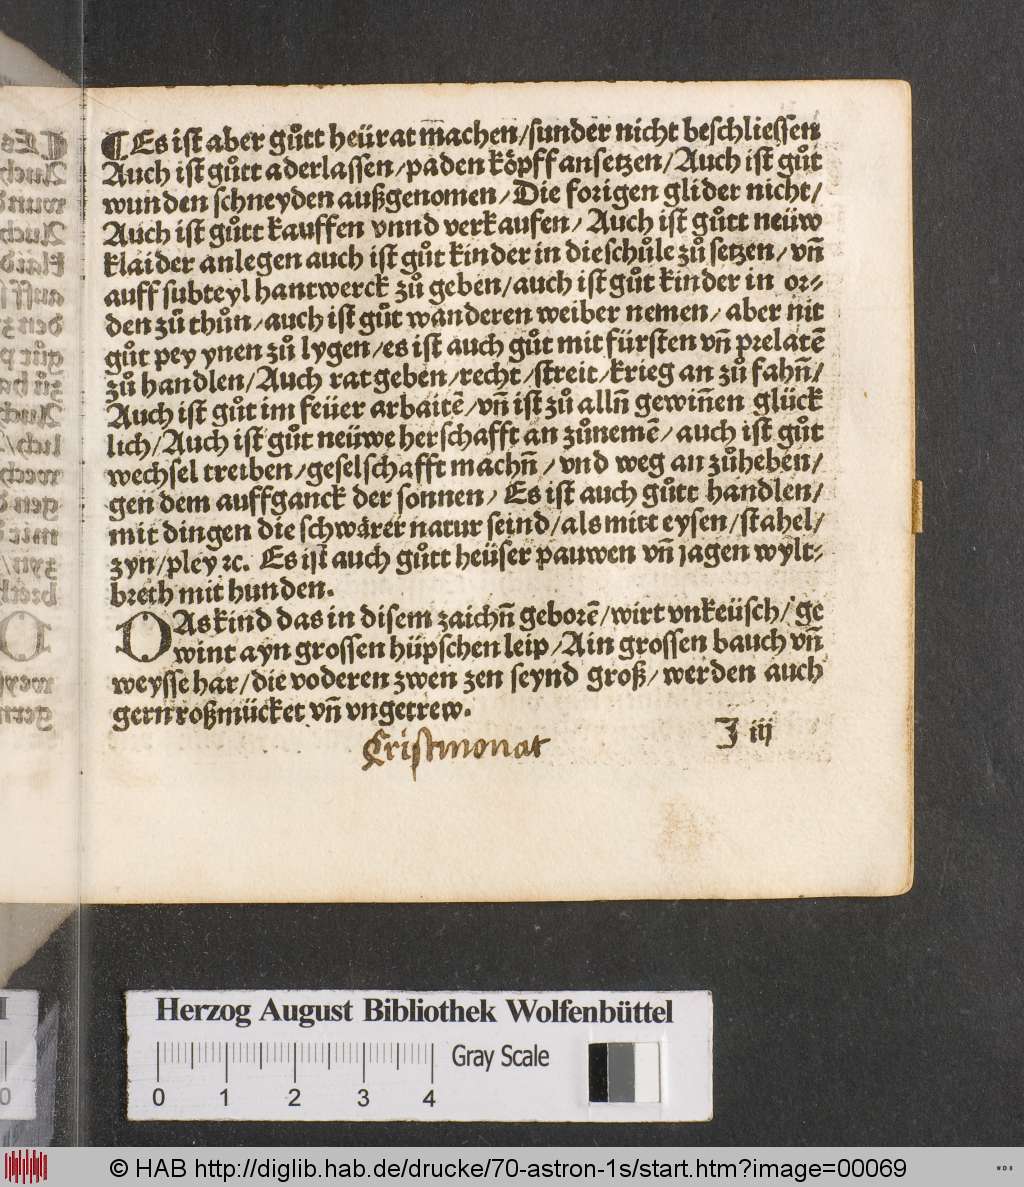 ¶Es ist aber gůtt heürat machen/sunder nicht beschliessen
Auch ist gůtt aderlassen/paden köpff ansetzen/Auch ist gůt
wunden schneyden außgenomen/Die forigen glider nicht/
Auch ist gůtt kauffen vnnd verkaufen/Auch ist gůtt neüw
klaider anlegen auch ist gůt kinder in die schůle zů setzen/vñ
auff subteyl hantwerck zů geben/auch ist gůt kinder in or⸗
den zů thůn/auch ist gůt wanderen weiber nemen/aber nit
gůt pey ynen zů lygen/es ist auch gůt mit fürsten vñ prelatē
zů handlen/Auch rat geben/recht/streit/krieg an zů fahñ/
Auch ist gůt im feüer arbaitē/vñ ist zů allñ gewiñen glück
lich/Auch ist gůt neüwe herschafft an zůnemē/auch ist gůt
wechsel treiben/geselschafft machñ/vnd weg an zůheben/
gen dem auffganck der sonnen/Es ist auch gůtt handlen/
mit dingen die schwärer natur seind/als mitt eysen/stahel/
zyn/pley ꝛc. Es ist auch gůtt heüser pauwen vñ jagen wylt⸗
breth mit hunden.
DAs kind das in disem zaichñ geborē/wirt vnkeüsch/ge
wint ayn grossen hüpschen leip/Ain grossen bauch vñ
weysse har/die voderen zwen zen seynd groß/werden auch
gern roßmücket vñ vngetrew.
Cristmonat
J iij
Herzog August Bibliothek Wolfenbüttel
Gray Scale
0 1 2 3 4
© HAB http://diglib.hab.de/drucke/70-astron-1s/start.htm?image=00069